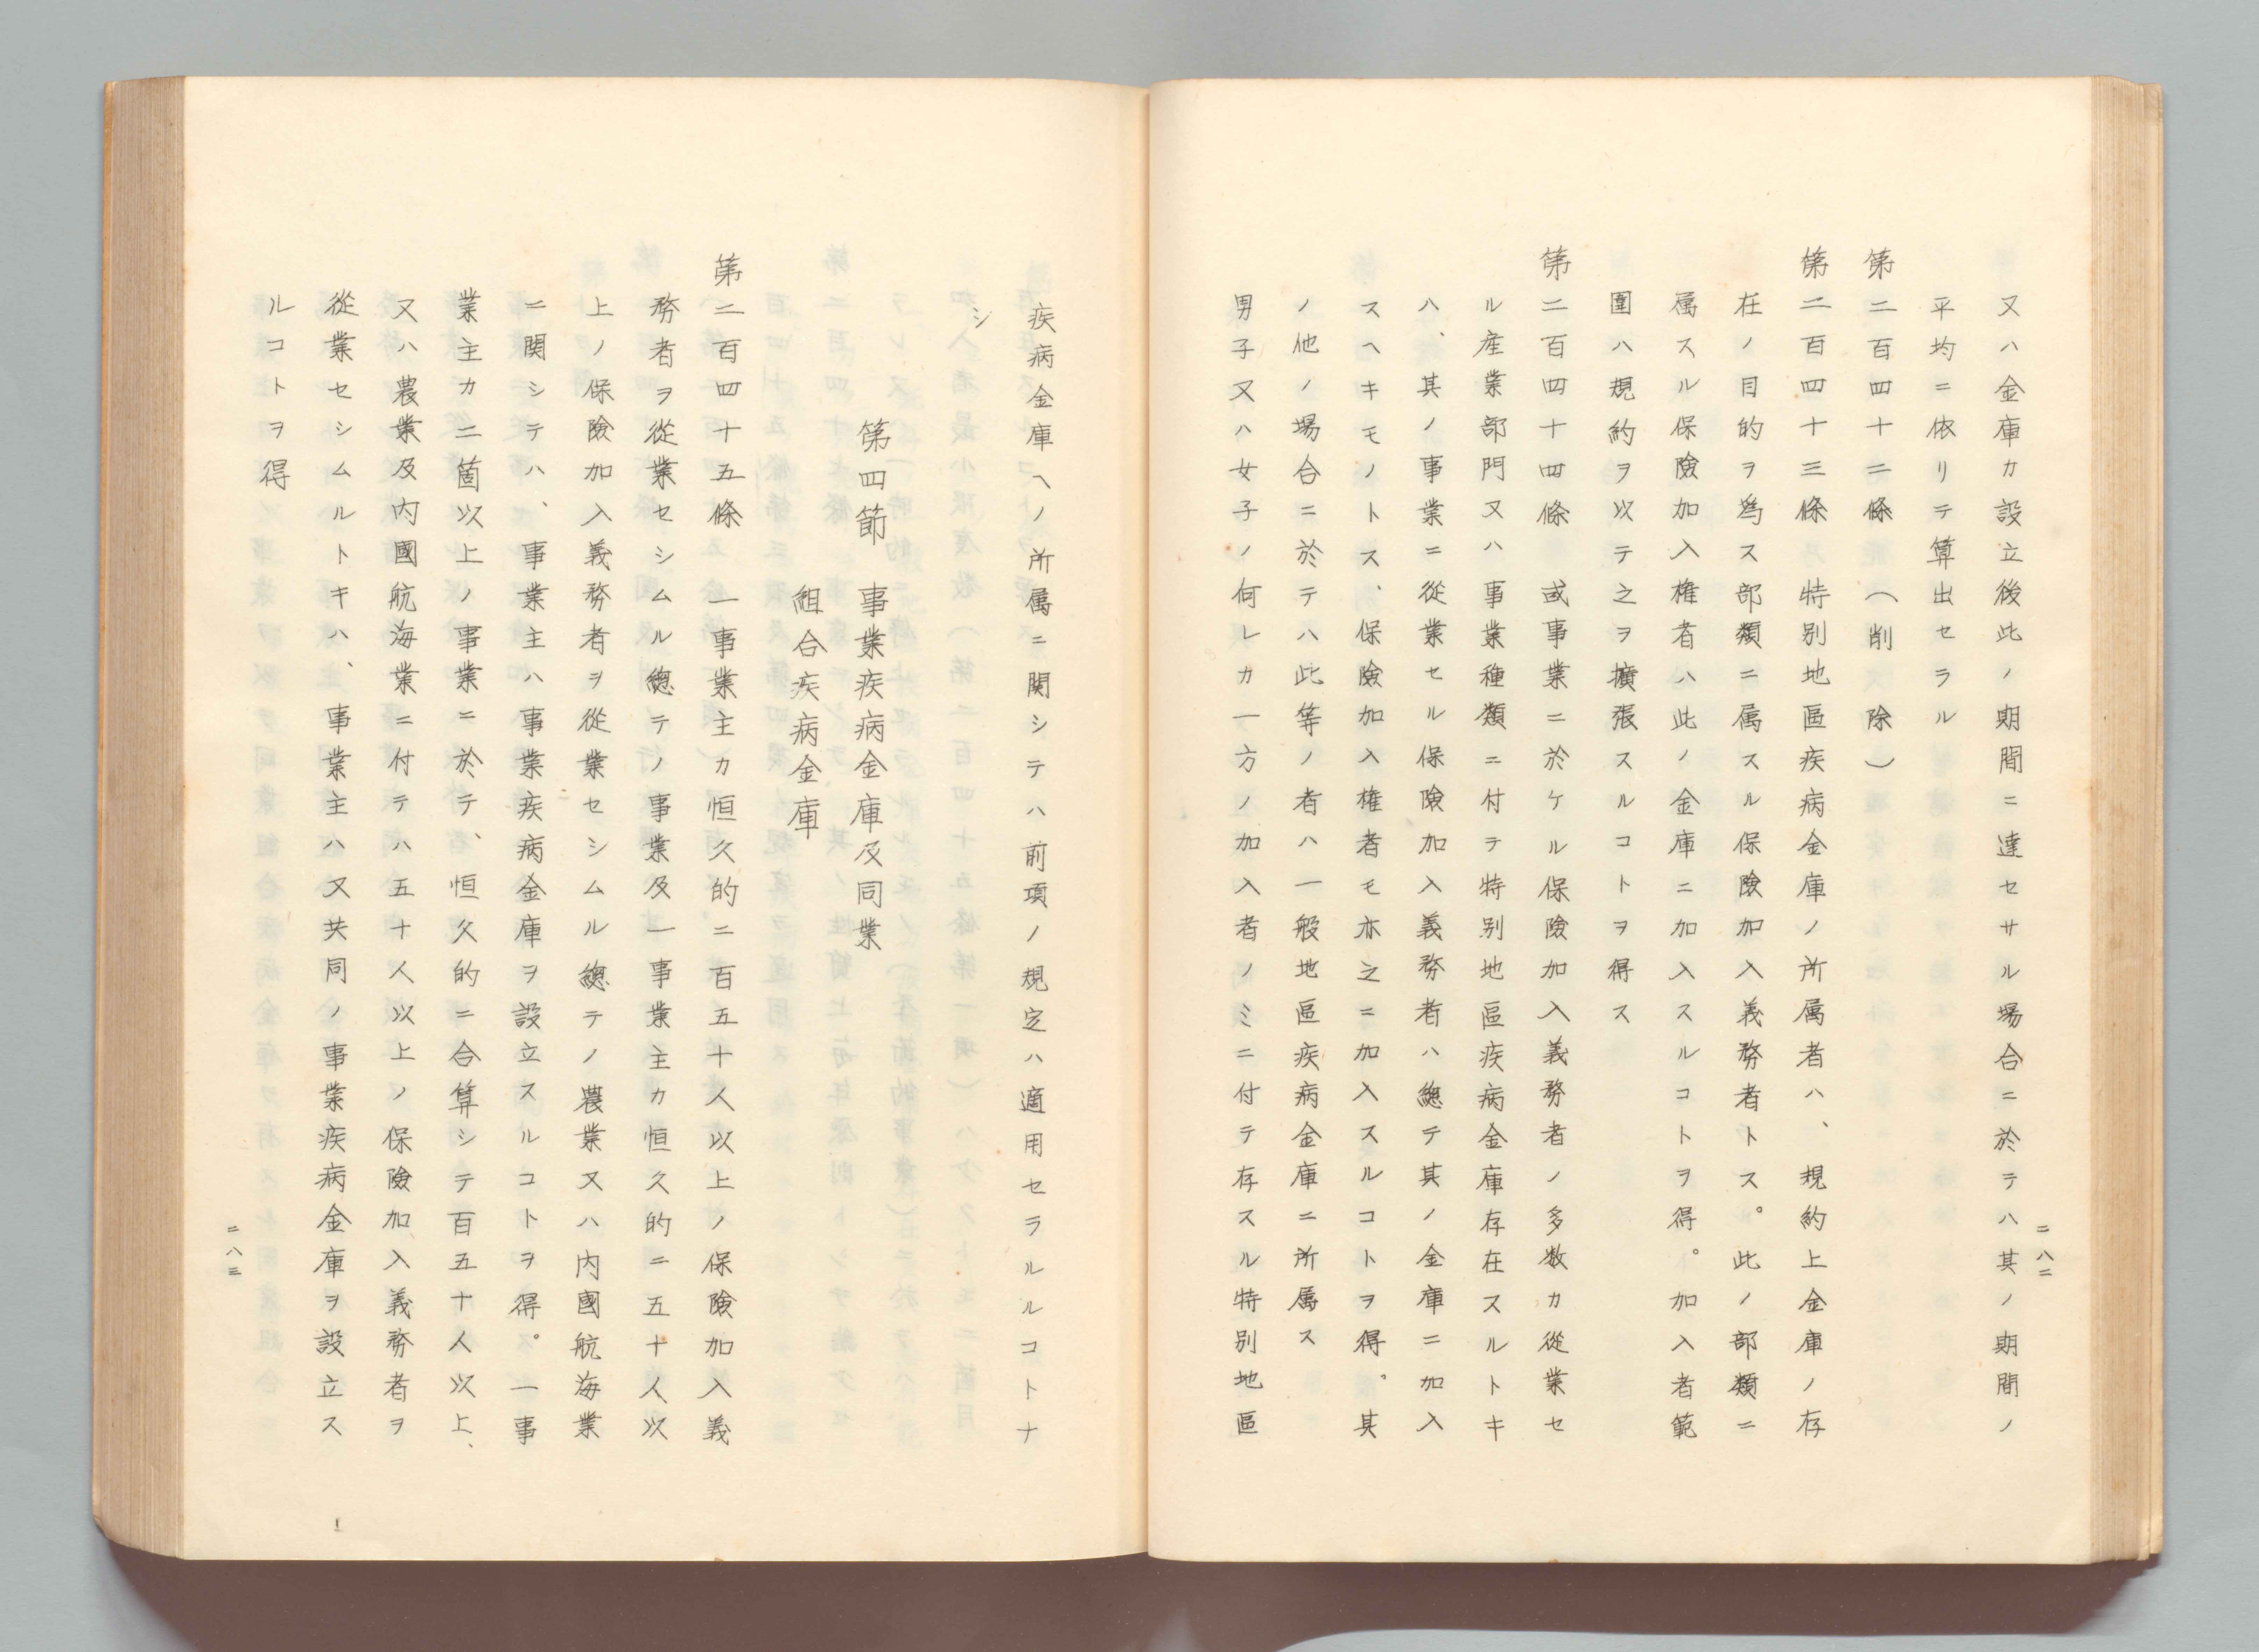 又ハ金庫カ設立後此ノ期間ニ達セサル場合ニ於テハ其ノ期間ノ
平均ニ依リテ算出セラル
第二百四十二條　（削　除）
第二百四十三條　特別地區疾病金庫ノ所属者ハ、規約上金庫ノ存
在ノ目的ヲ爲ス部類ニ属スル保險加入義務者トス。此ノ部類ニ
属スル保險加入権者ハ此ノ金庫ニ加入スルコトヲ得。加入者範
圍ハ規約ヲ以テ之ヲ擴張スルコトヲ得ス
第二百四十四條　或事業ニ於ケル保險加入義務者ノ多数カ從業セ
ル産業部門又ハ事業種類ニ付テ特別地區疾病金庫存在スルトキ
ハ、其ノ事業ニ從業セル保險加入義務者ハ總テ其ノ金庫ニ加入
スヘキモノトス、保險加入権者モ亦之ニ加入スルコトヲ得。其
ノ他ノ場合ニ於テハ此等ノ者ハ一般地區疾病金庫ニ所属ス
男子又ハ女子ノ何レカ一方ノ加入者ノミニ付テ存スル特別地區
二八二
疾病金庫ヘノ所属ニ関シテハ前項ノ規定ハ適用セラルルコトナ
シ
第四節　事業疾病金庫及同業
組合疾病金庫
第二百四十五條　一事業主カ恒久的ニ百五十人以上ノ保險加入義
務者ヲ從業セシムル總テノ事業及一事業主カ恒久的ニ五十人以
上ノ保險加入義務者ヲ從業セシムル總テノ農業又ハ内國航海業
ニ関シテハ、事業主ハ事業疾病金庫ヲ設立スルコトヲ得。一事
業主カ二箇以上ノ事業ニ於テ、恒久的ニ合算シテ百五十人以上、
又ハ農業及内國航海業ニ付テハ五十人以上ノ保險加入義務者ヲ
從業セシムルトキハ、事業主ハ又共同ノ事業疾病金庫ヲ設立ス
ルコトヲ得
二八三